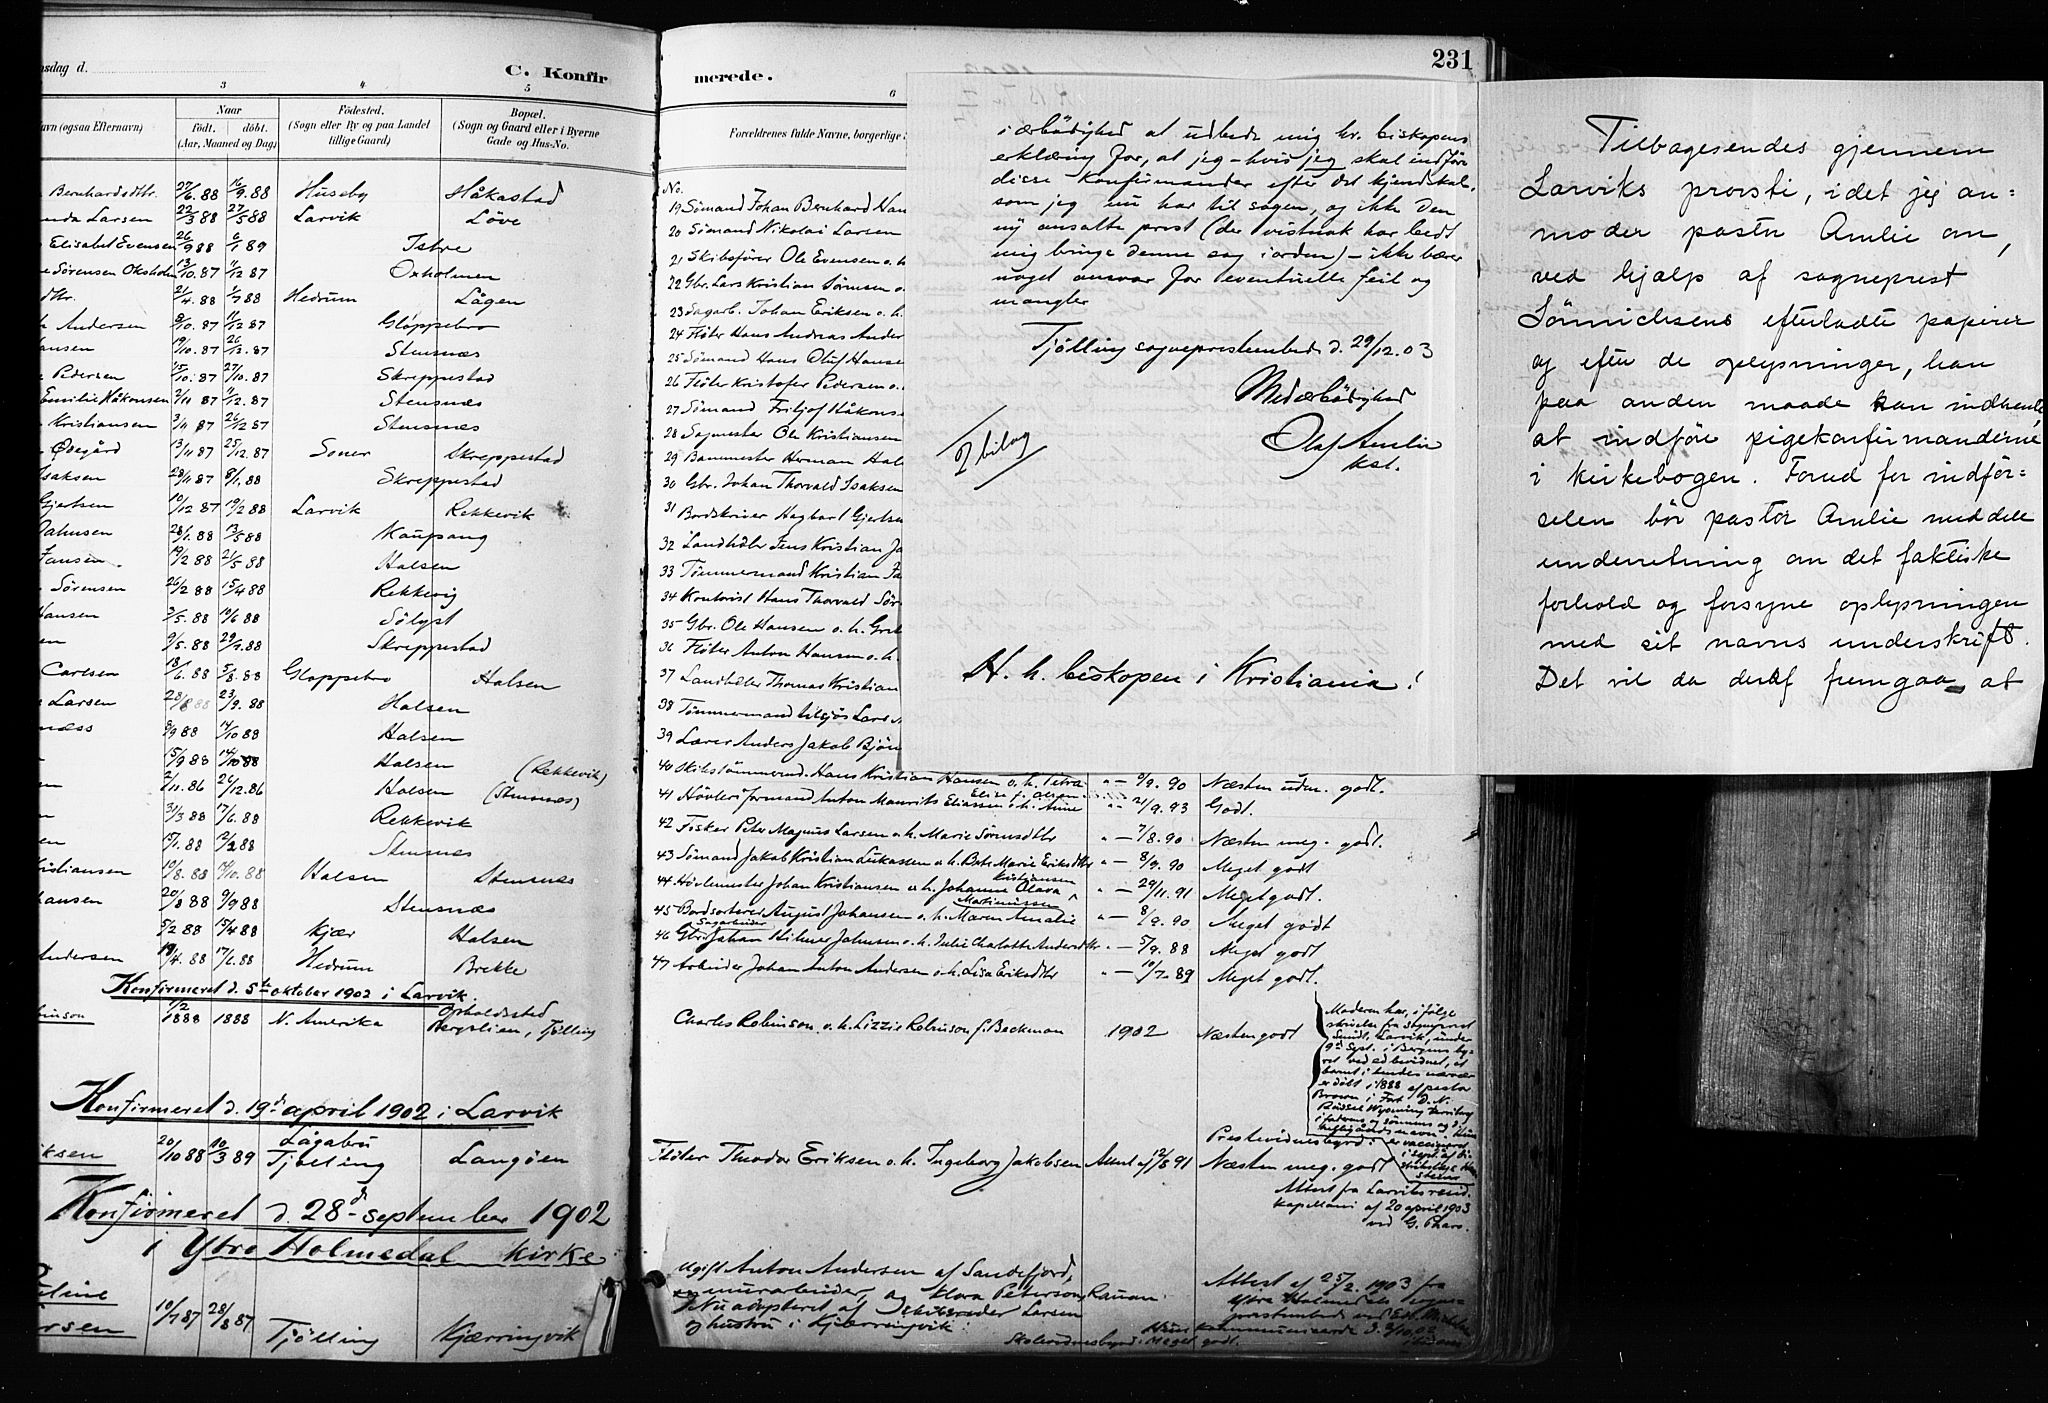 nsdag d.
C. Konfir
merede.
231
3
4
5
6
avn (ogsaa Efternavn)
Naar
født. døbt.
(Aar, Maaned og Dag)
Fødested.
(Sogn eller By og paa Landet
tillige Gaard)
Bopæl.
(Sogn og Gaard eller i Byerne
Gade og Hus-No.
Forældrenes fulde Navne, borgerlige
Bernhardsdtr. 27/6. 88 16/9. 88 Huseby Håkastad
Larsen 22/3 88 27/5 88 Larvik Löve
Elisabet Evensen 26/9 88 6/1 89 Istre
Sörensen Oksholm 13/10. 87 11/12 87 Oxholmen
dtr. 21/4. 88 1/7 88 Hedrum Lågen
Andersen 9/10. 87 11/12 87 Gloppebro
ansen 19/10. 87 26/12. 87 Stensnæs
Pedersen 15/10. 87 27/10. 87 Skreppestad
Emilie Håkonsen 2/11 87 11/12. 87 Stensnæs
Kristiansen 3/11 87 26/12 87 Stensnæs
Ödegård 13/11 87 25/12. 87 Soner Skreppestad
Isaksen 29/11 87 8/1. 88 Skreppestad
Gjertsen 10/12 87 19/2 88 Larvik Rekkevik
28/1. 88 13/5 88 Kaupang
Jansen. 19/2 88 21/5. 88 Halsen
Sörensen 26/2 88 15/4 88 Rekkevig
Hansen 3/5. 88 10/6 88 Sölyst
en 9/5. 88 29/7. 88 Skreppestad
Carlsen 18/6. 88 5/8. 88 Gloppebro Halsen
Larsen 28/8 88 23/9. 88 Halsen
næss 8/9 88 14/10 88 Halsen
15/9 88 14/10 88 Halsen (Rekkevik)
2/11. 86 26/12. 86 Halsen (Stensnæs)
31/3 88 17/6. 88 Rekkevik
en 15/1. 88 12/2 88 Stensnæs
Kristiansen 19/8. 88 14/10. 88 Halsen Stensnæs
hansen 20/8 88 9/9 88 Stensnæs
5/2 88 15/4 88 Kjær Halsen
Andersen 19/4. 88 17/6. 88 Hedrum Brekke
Konfirmeret d. 5te oktober 1902 i Larvik.
binson 1/2 1888 1888 N. Amerika Opholdssted
Bergslien, Tjölling
Konfirmeret d. 19de april 1902 i Larvik
iksen 20/10 88 10/3 89 Lågabru
Tjölling Langöen
Konfirmeret d. 28de september 1902
i Ytre Holmedal kirke
line
rsen 10/7 87 28/8 87 Tjölling Kjærringvik
No.
19 Sömand Johan Bernhard Han
20 Sömand Nikolai Larsen
21 Skibsförer Ole Evensen o. h
22 Gbr. Lars Kristian Sörensen o.
23 Sagarb. Johan Eriksen o. h.
24 Flöter Hans Andreas Ander
25 Sömand Hans Oluf Hanse
26 Flöter Kristofer Pedersen o.
27 Sömand Fritjof Håkons
28 Sagmester Ole Kristiansen
29 Bommester Herman Hal
30 Gbr. Johan Thorvald Isaksen
31 Bordskriver Hagbart Gjertse
32 Landhdlr Jens Kristian Jo
33 Tömmermand Kristian Ja
34 Kontorist Hans Thorvald Sör
35 Gbr. Ole Hansen o. h. Gret
36 Flöter Anton Hansen o. h.
37 Landhdlr Thomas Kristian
38 Tömmermand tilsjös Lars
39 Lærer Anders Jakob Bjön
40 Skibstömmermd. Hans Kristian Hansen o. h. Petra „ — 9/9. 90 Næsten udm. godt.
Elise f. Olsen
41 Høvleriformand Anton Maurits Eliassen o. h. Anne „ — 21/9. 93 Godt.
42 Fisker Peter Magnus Larsen o. h. Marie Sörensdtr „ — 7/8. 90 Næsten meg. godt.
43 Sömand Jakob Kristian Lukassen o. h. Berte Marie Eriksdtr „ — 8/9. 90 Meget godt
Kristiansen
44 Høvlemester Johan Kristiansen o. h. Johanne Olava „ — 29/11. 91 Meget godt.
Martinissen
45 Bordsorterer August Johansen o. h. Maren Amalie „ — 8/9. 90 Meget godt
Sagarbeider
46 Gbr. Johan Hilmer Johnsen o. h. Julie Charlotte Andersdtr „ — 5/9. 88 Meget godt
47 Arbeider Johan Anton Andersen o. h. Lisa Eriksdtr „ — 10/7. 89 Meget godt.
Charles Robinson o. h. Lizzie Robinson f. Beckman 1902 Næsten godt
Moderen har, i fölge
skrivelse fra sogneprest
Smidt, Larvik, under
9de Sept. i Bergens by-
ret ved ed bevidnet, at
barnet i hendes nærvær
er döbt i 1888 af pastor
Brown i Fort D. N.
Russel Wyoming territory
Prestevidnesbyrd:
Flöter Theodor Eriksen o. h. Ingeborg Jakobsen Attest af 12/8 91 Næsten meg. godt
Attest fra Larviks resid.
kapellani af 20 april 1903
ved G. Thars.
Ugift Anton Andersen af Sandefjord,
murarbeider, og Klara Peterson, Rauan.
Nu adopteret af Skibsreder Larsen
og hustru i Kjærringvik.
Attest af 25/2. 1903 fra
Ytre Holmedals sogne-
prestembed ved
Hun kommunicerede d. 3/10. 02
Skolevidnesbyrd: Meget godt.
i ærbödighed at udbede mig hr. biskopens
erklæring for, at jeg – hvis jeg skal indföre
disse konfirmander efter det kjendskab,
som jeg nu har til sagen, og ikke den
ny ansatte prest (der vistnok har bedt
mig bringe denne sag i orden) – ikke bærer
noget ansvar for eventuelle feil og
mangler
Tjölling sogneprestembed d. 29/12. 03
Med ærbödighed
Olaf Amlie
kst.
7 bilag
H. h. biskopen i Kristiania!
Tilbagesendes gjennem
Larviks provsti, idet jeg an=
moder pastor Amlie om,
ved hjælp af sogneprest
Sönnichsens efterladte papirer
og efter de oplysninger, han
paa anden maade kan indhente,
at indföre pigekonfirmanderne
i kirkebogen. Forud for indför=
selen bör pastor Amlie meddele
underretning om det faktiske
forhold og forsyne oplysningen
med sit navns underskrift.
Det vil da deraf fremgaa, at